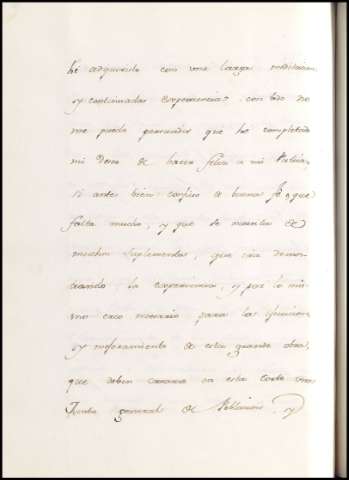 hé adquirido con una larga meditacion
y continuadas Experiencias; con todo no
me puedo persuadir que he completado
mi deseo de hacer feliz a mi Patria,
si antes bien confieso de buena fe, que
falta mucho, y que se necesita de
muchos suplementos, que irá demos-
trando la experiencia, y por lo mis-
mo creo necesario para la
y mejoramiento de esta grande obra,
que deben crearse en esta Corte una
Junta general de y